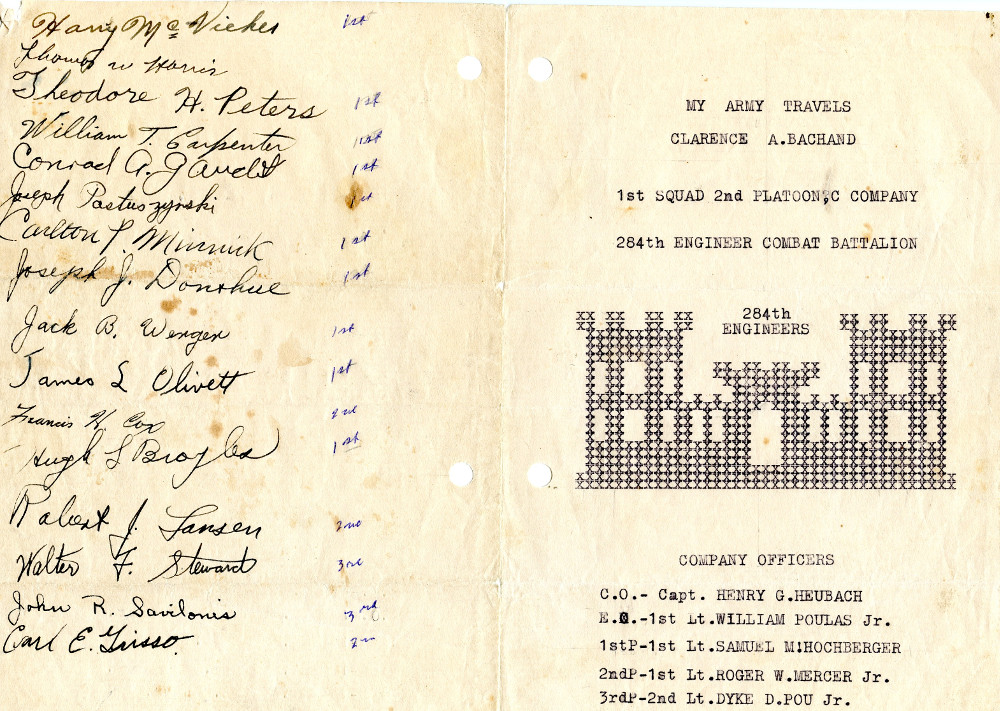 Harry Mc Vicker 1st
Thomas W Harris
Theodore H. Peters 1st
William T. Carpenter 1st
Conrad A. Gaudet 1st
Joseph Pastuszynski 1st
Carlton P. Minnick 1st
Joseph J. Donohue 1st
Jack B. Wenger 1st
James L Olivett 1st
Francis H. Cox 2nd
Hugh L Broyles 1st
Robert J. Jansen 2nd
Walter F. Steward 3rd
John R. Savilonis 3rd
Carl E. 2nd
MY ARMY TRAVELS
CLARENCE A.BACHAND
1st SQUAD 2nd PLATOON,C COMPANY
284th ENGINEER COMBAT BATTALION
284th
ENGINEERS
COMPANY OFFICERS
C.O.- Capt. HENRY G.HEUBACH
E.O.-1st Lt.WILLIAM POULAS Jr.
1stP-1st Lt.SAMUEL M.HOCHBERGER
2ndP-1st Lt.ROGER W.MERCER Jr.
3rdP-2nd Lt.DYKE D.POU Jr.